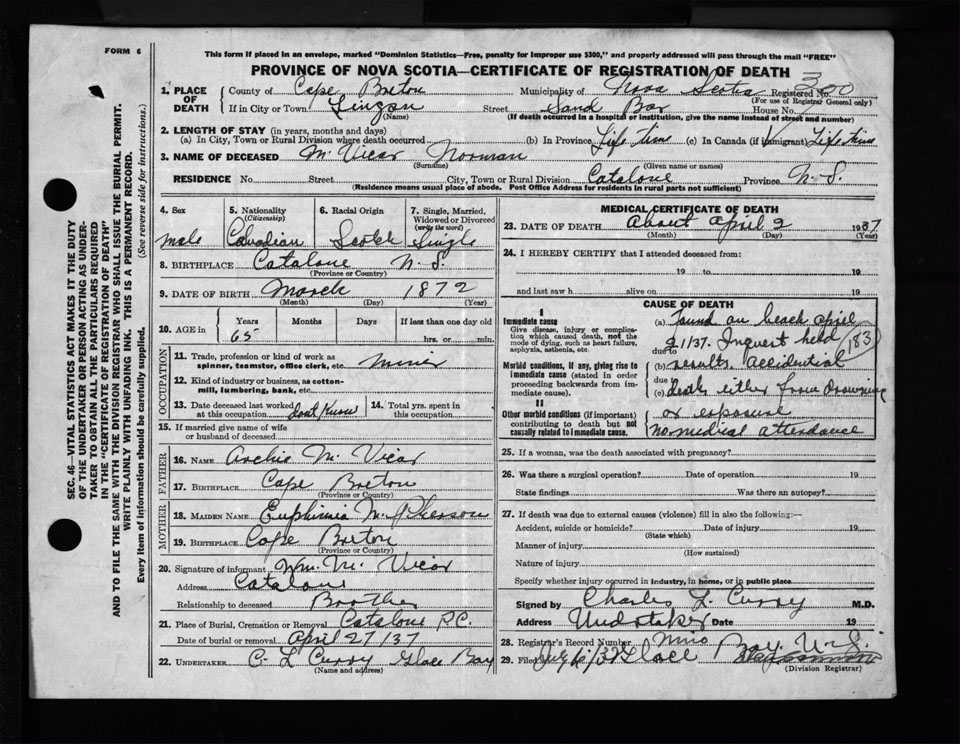 FORM 6
This form if placed in an envelope, marked "Dominion Statistics—Free, penalty for improper use $300," and properly addressed will pass through the mail "FREE"
PROVINCE OF NOVA SCOTIA—CERTIFICATE OF REGISTRATION OF DEATH
SEC. 46—VITAL STATISTICS ACT MAKES IT THE DUTY
OF THE UNDERTAKER OR PERSON ACTING AS UNDER-
TAKER TO OBTAIN ALL THE PARTICULARS REQUIRED
IN THE "CERTIFICATE OF REGISTRATION OF DEATH"
AND TO FILE THE SAME WITH THE DIVISION REGISTRAR WHO SHALL ISSUE THE BURIAL PERMIT.
WRITE PLAINLY WITH UNFADING INK. THIS IS A PERMANENT RECORD.
Every item of information should be carefully supplied. (See reverse side for instructions.)
1. PLACE OF DEATH County of Cape Breton Municipality of Nova Scotia Registered No. 300
(For use of Registrar General only)
If in City or Town Lingan Street Sand Bar House No.
(Name) (If death occurred in a hospital or institution, give the name instead of street and number)
2. LENGTH OF STAY (in years, months and days)
(a) In City, Town or Rural Division where death occurred (b) In Province Life time (c) In Canada (if immigrant) Life time
3. NAME OF DECEASED Mc Vicar Norman
(Surname) (Given name or names)
RESIDENCE No. Street City, Town or Rural Division Catalone Province N.S.
(Residence means usual place of abode. Post Office Address for residents in rural parts not sufficient)
4. Sex 5. Nationality (Citizenship) 6. Racial Origin 7. Single, Married, Widowed or Divorced (write the word)
Male Canadian Scotch Single
8. BIRTHPLACE Catalone N.S.
(Province or Country)
9. DATE OF BIRTH March 1872
(Month) (Day) (Year)
10. AGE in Years Months Days If less than one day old
65 hrs. or min.
OCCUPATION
11. Trade, profession or kind of work as spinner, teamster, office clerk, etc. Miner
12. Kind of industry or business, as cotton-mill, lumbering, bank, etc.
13. Date deceased last worked at this occupation dont know 14. Total yrs. spent in this occupation
15. If married give name of wife or husband of deceased
FATHER
16. NAME Archie Mc Vicar
17. BIRTHPLACE Cape Breton
(Province or Country)
MOTHER
18. MAIDEN NAME Euphimia Mc Pherson
19. BIRTHPLACE Cape Breton
(Province or Country)
20. Signature of informant Wm. Mc Vicar
Address Catalone
Relationship to deceased Brother
21. Place of Burial, Cremation or Removal Catalone P.C.
Date of burial or removal April 27/37
22. UNDERTAKER C. L Curry Glace Bay
(Name and address)
MEDICAL CERTIFICATE OF DEATH
23. DATE OF DEATH About April 2 1937
(Month) (Day) (Year)
24. I HEREBY CERTIFY that I attended deceased from:
19 to 19
and last saw h alive on 19
CAUSE OF DEATH
I
Immediate cause
Give disease, injury or complication which caused death, not the mode of dying, such as heart failure, asphyxia, asthenia, etc.
Morbid conditions, if any, giving rise to immediate cause (stated in order proceeding backwards from immediate cause).
II
Other morbid conditions (if important) contributing to death but not causally related to immediate cause.
(a) Found on beach April
due to 21/37. Inquest held 183
(b) results. Accidential
due to
(c) death either from drowning
or exposure
no medical attendance
25. If a woman, was the death associated with pregnancy?
26. Was there a surgical operation? Date of operation 19
State findings Was there an autopsy?
27. If death was due to external causes (violence) fill in also the following:—
Accident, suicide or homicide? Date of injury 19
(State which)
Manner of injury
(How sustained)
Nature of injury
Specify whether injury occurred in industry, in home, or in public place
Signed by Charles L. Curry M.D.
Address Undertaker Date 19
28. Registrar's Record Number
29. Filed July 6/37 Glace Bay N.S.
(Division Registrar)